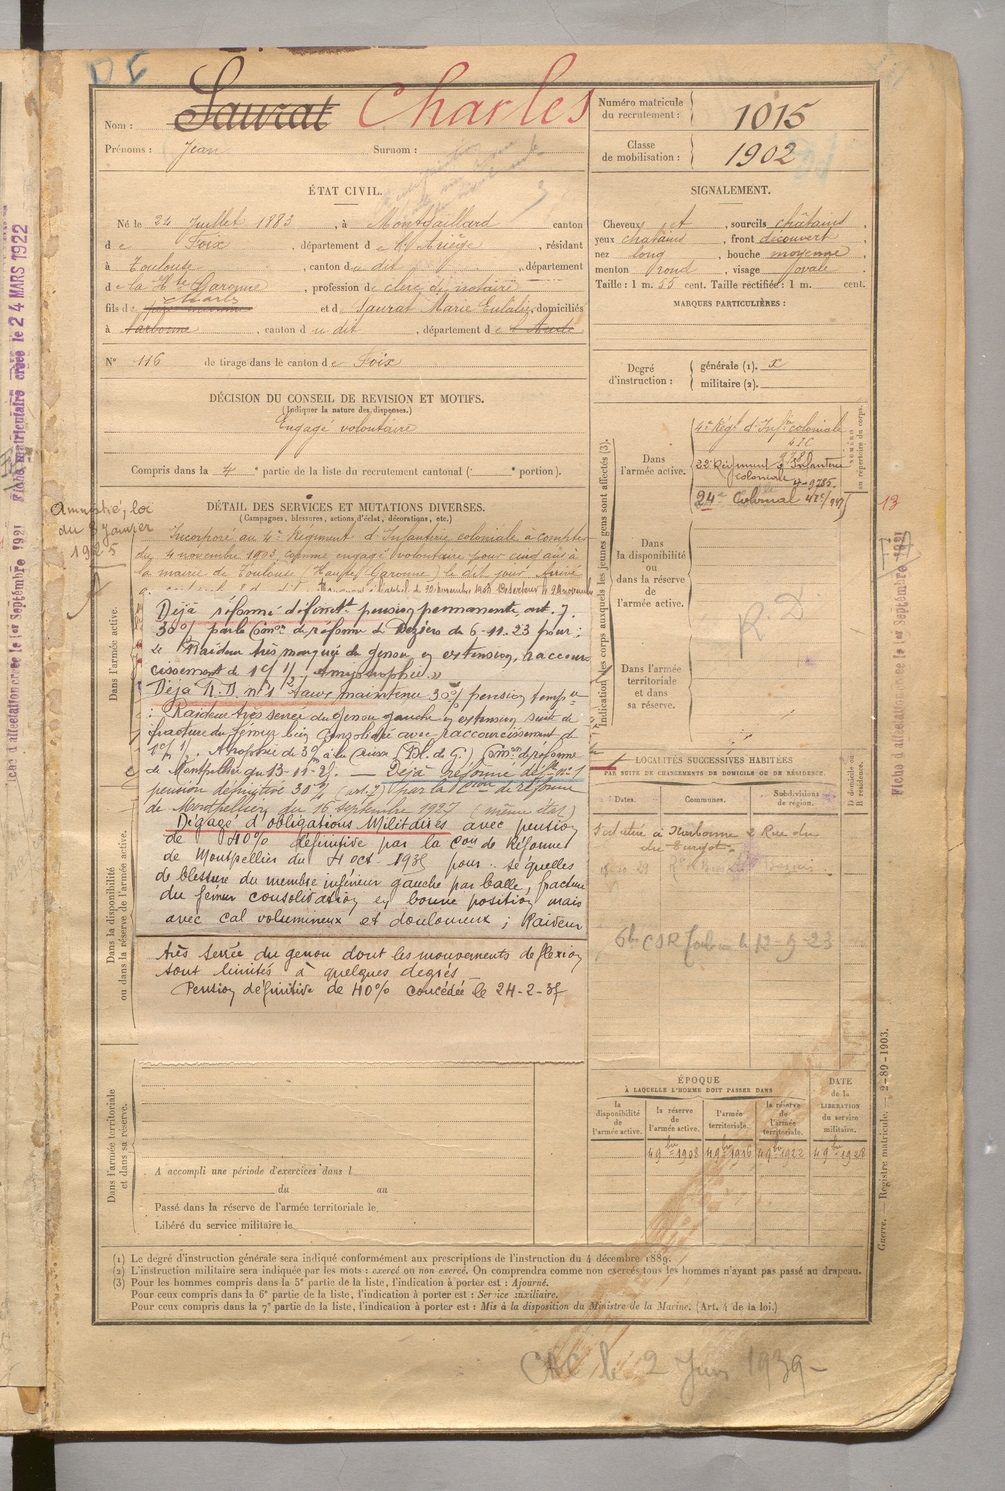 Nom : Saurat Charles
Prénoms : Jean Surnom :
Numéro matricule du recrutement : 1015
Classe de mobilisation : 1902
ÉTAT CIVIL.
Né le 24 Juillet 1883, à Montgaillard canton
de Foix, département de l'Ariège, résidant
à Toulouse, canton du dit, département
de la Hte Garonne, profession de clerc de notaire
fils de Charles et de Saurat Marie Eulalie, domiciliés
à Narbonne, canton du dit, département de l'Aude
N° 116 de tirage dans le canton de Foix
DÉCISION DU CONSEIL DE REVISION ET MOTIFS.
(Indiquer la nature des dispenses.)
Engagé volontaire
Compris dans la 4e partie de la liste du recrutement cantonal ( e portion).
SIGNALEMENT.
Cheveux et, sourcils châtains,
yeux châtains, front découvert,
nez long, bouche moyenne,
menton rond, visage ovale.
Taille : 1 m. 55 cent. Taille rectifiée : 1 m. cent.
MARQUES PARTICULIÈRES :
Degré d'instruction :
générale (1). x
militaire (2).
DÉTAIL DES SERVICES ET MUTATIONS DIVERSES.
(Campagnes, blessures, actions d'éclat, décorations, etc.)
Amnistié, loi
du 3 Janvier
1925
Incorporé au 4e Régiment d'Infanterie coloniale à compter
du 4 novembre 1903, comme engagé volontaire pour cinq ans à
la mairie de Toulouse (Haute Garonne) le dit jour. Arrivé
Déjà réformé définitt pension permanente art. 7.
30% par la Comon de réforme de Béziers du 6-11-23 pour :
"Raideur très marquée du genou en extension, raccour
cissement de 1c/1/2 amyotrophie."
Déjà R.D. n°1 taux maintenu 30% pension tempre
: Raideur très serrée du genou gauche en extension suite de
fracture du fémur bien consolidée avec raccourcissement de
1c/1/2. Atrophie de 3c/ à la cuisse (Bl. de G.) Comon de réforme
de Montpellier du 13-11-25. — Déjà réformé défre n°1
pension définitive 30% (art. 7) par la Comon de réforme
de Montpellier du 16 septembre 1927 (même état)
Dégagé d'obligations Militaires avec pension
de 40% définitive par la Con de Réforme
de Montpellier du 4 oct. 1935 pour : séquelles
de blessure du membre inférieur gauche par balle, fracture
du fémur consolidation en bonne position mais
avec cal volumineux et douloureux ; Raideur
très serrée du genou dont les mouvements de flexion
sont limités à quelques degrés
Pension définitive de 40% concédée le 24-2-35
Dans l'armée active.
Dans la disponibilité
ou dans la réserve de l'armée active.
Dans l'armée territoriale
et dans sa réserve.
A accompli une période d'exercices dans l
du au
Passé dans la réserve de l'armée territoriale le
Libéré du service militaire le
Indication des corps auxquels les jeunes gens sont affectés (3).
NUMÉRO au répertoire du corps.
Dans l'armée active.
4e Régt d'Infrie coloniale
22e Régiment d'Infanterie
coloniale 9785
24e Colonial
13
Dans la disponibilité ou dans la réserve de l'armée active.
R. D.
Dans l'armée territoriale et dans sa réserve.
LOCALITÉS SUCCESSIVES HABITÉES
PAR SUITE DE CHANGEMENTS DE DOMICILE OU DE RÉSIDENCE.
Dates. Communes. Subdivisions de région. D domicile ou R résidence.
à Narbonne 2 Rue du
6e CSR Toulouse le 12-9-23
ÉPOQUE
À LAQUELLE L'HOMME DOIT PASSER DANS
la disponibilité de l'armée active. la réserve de l'armée active. l'armée territoriale. la réserve de l'armée territoriale. DATE de la LIBÉRATION du service militaire.
4 9bre 1908 4 9bre 1916 4 9bre 1922 4 9bre 1928
(1) Le degré d'instruction générale sera indiqué conformément aux prescriptions de l'instruction du 4 décembre 1889.
(2) L'instruction militaire sera indiquée par les mots : exercé ou non exercé. On comprendra comme non exercés tous les hommes n'ayant pas passé au drapeau.
(3) Pour les hommes compris dans la 5e partie de la liste, l'indication à porter est : Ajourné.
Pour ceux compris dans la 6e partie de la liste, l'indication à porter est : Service auxiliaire.
Pour ceux compris dans la 7e partie de la liste, l'indication à porter est : Mis à la disposition du Ministre de la Marine. (Art. 4 de la loi.)
Guerre. — Registre matricule. — 2-89-1903.
Fiche d'affectation créée le 1er Septembre 1921
Fiche matriculaire créée le 24 MARS 1922
Fiche d'affectation créée le 1er Septembre 1921
le 2 Juin 1939